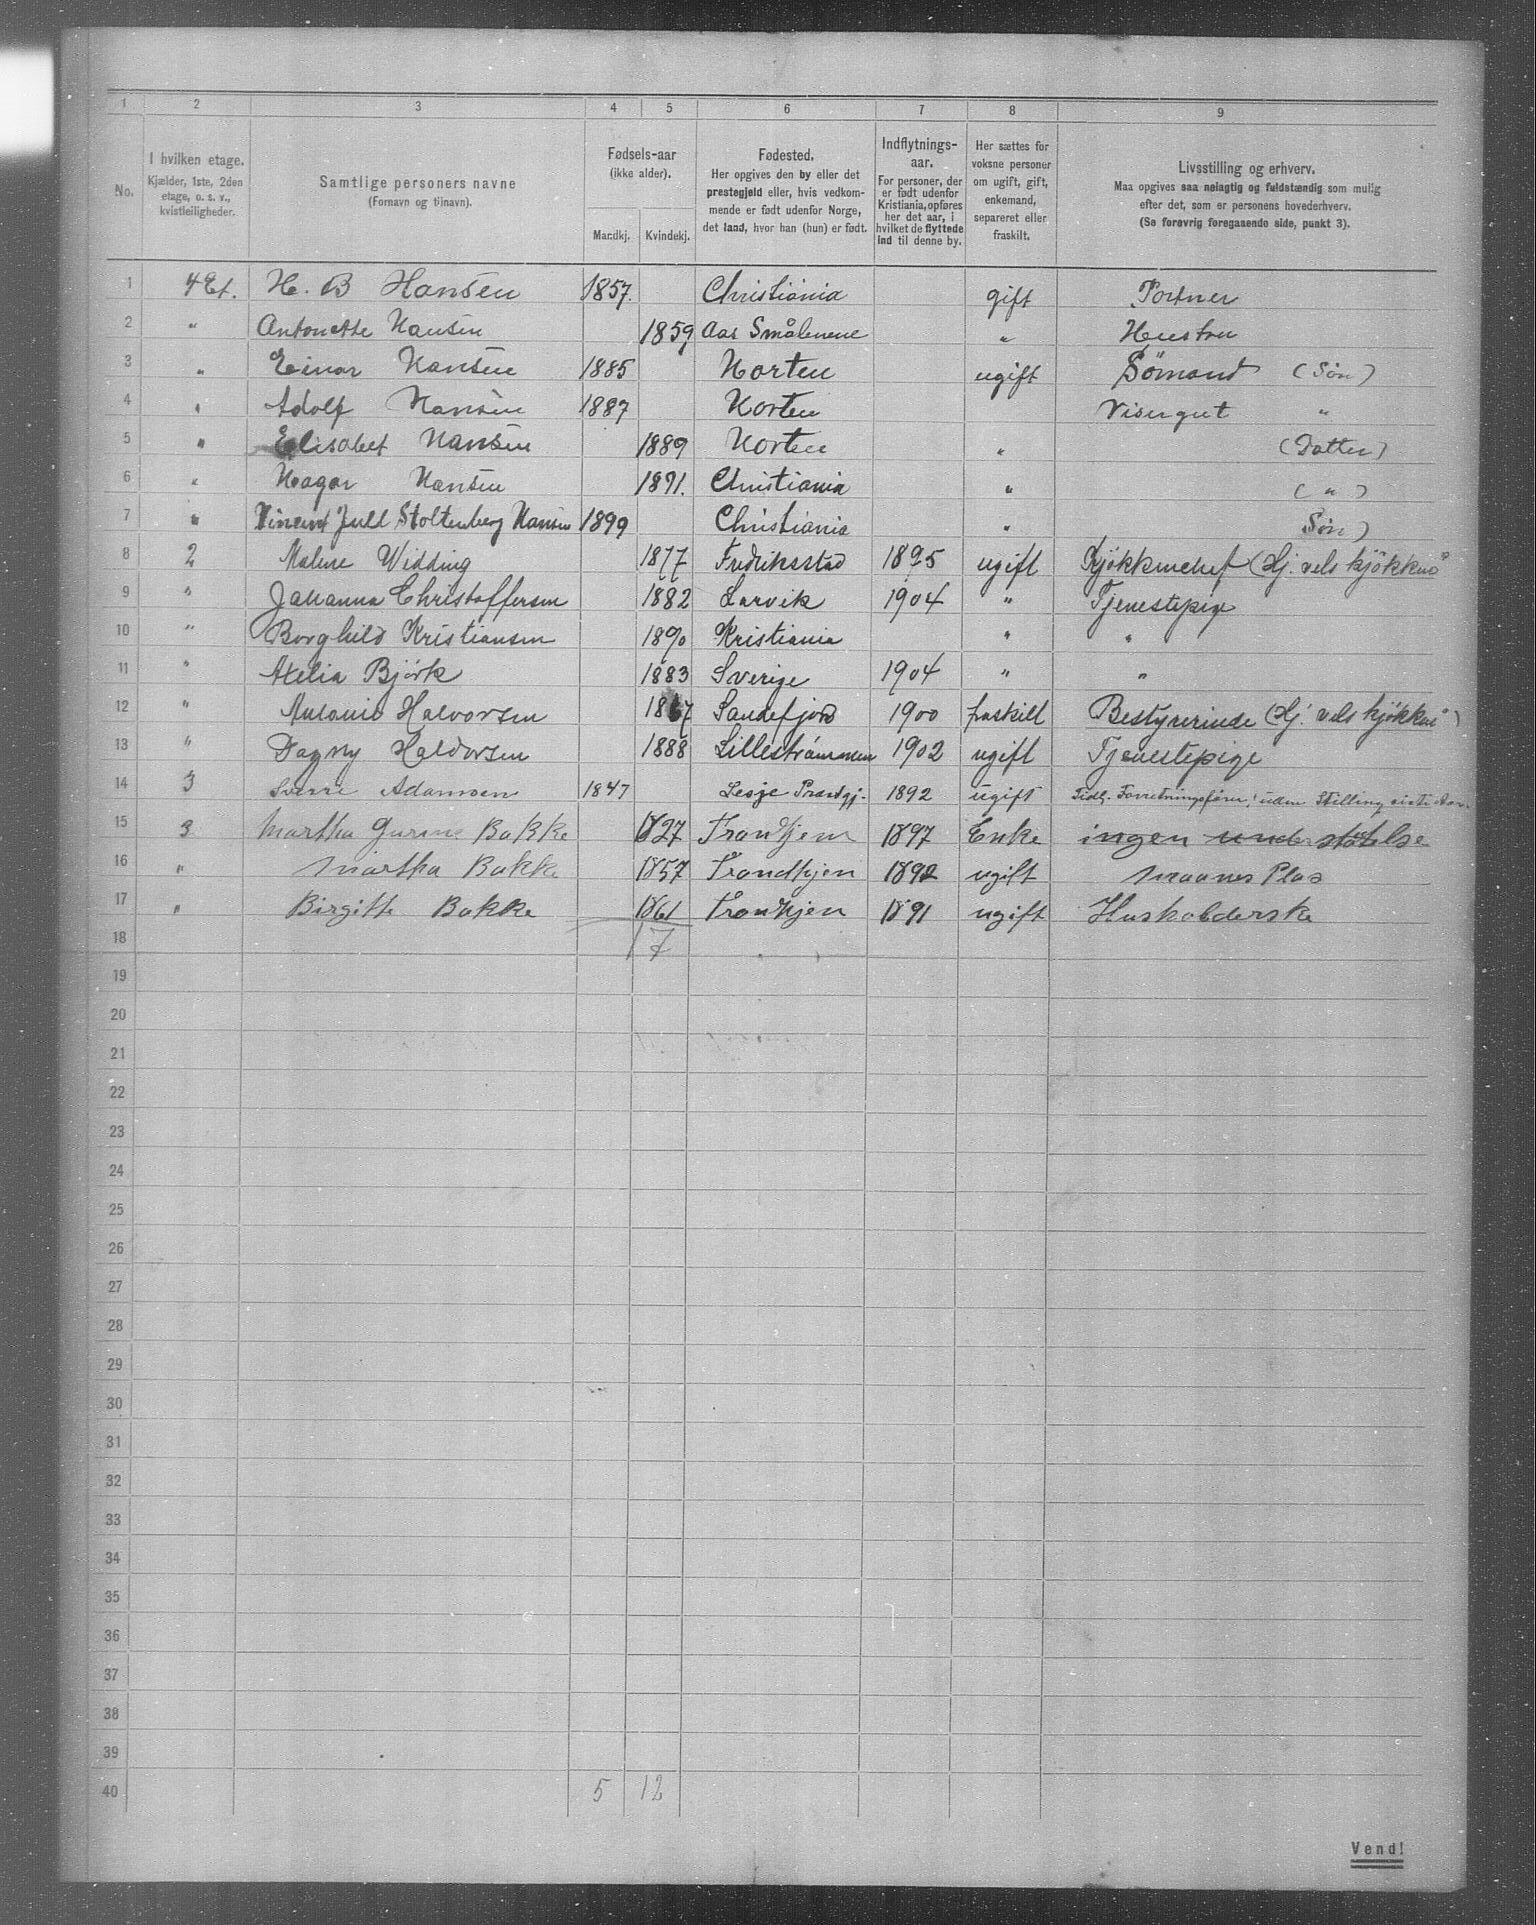 1 2 3 4 5 6 7 8 9
No.
I hvilken etage.
Kjælder, 1ste, 2den
etage, o. s. v.,
kvistleiligheder.
Samtlige personers navne
(Fornavn og tilnavn).
Fødsels-aar
(ikke alder).
Mandkj. Kvindekj.
Fødested.
Her opgives den by eller det
prestegjeld eller, hvis vedkom-
mende er født udenfor Norge,
det land, hvor han (hun) er født.
Indflytnings-
aar.
For personer, der
er født udenfor
Kristiania, opføres
her det aar, i
hvilket de flyttede
ind til denne by.
Her sættes for
voksne personer
om ugift, gift,
enkemand,
separeret eller
fraskilt.
Livsstilling og erhverv.
Maa opgives saa nøiagtig og fuldstændig som mulig
efter det, som er personens hovederhverv.
(Se forøvrig foregaaende side, punkt 3).
1 4 Et. H. B Hansen 1857. Christiania gift Portner
2 " Antonette Hansen 1859 Aas Smålenene " Hustru
3 " Einar Hansen 1885 Horten ugift Sömand (Søn)
4 " Adolf Hansen 1887 Horten Visergut "
5 " Elisabet Hansen 1889 Horten " (Datter)
6 " Hagar Hansen 1891. Christiania " ( " )
7 " Vincent Jull Stoltenberg Hansen 1899 Christiania " Søn)
8 2 Malene Widding 1877 Fredriksstad 1895 ugift Kjökkenchef (Hj. vels kjökken)
9 " Johanna Christoffersen 1882 Larvik 1904 " Tjenestepige
10 " Borghild Kristiansen 1890 Kristiania " "
11 " Axelia Björk 1883 Sverige 1904 " "
12 " Melanie Halvorsen 1867 Sandefjord 1900 fraskilt Bestyrerinde (Hj. vels kjökken)
13 " Dagny Haldorsen 1888 Lillestrømmen 1902 ugift Tjenestepige
14 3 Sverre Adamsen 1847 Lesje Præstgj. 1892 ugift Tidl. Forretningsfører, uden Stilling sidste Aar.
15 3 Martha Gurine Bakke 1827 Tronhjem 1897 Enke ingen understøtelse
16 " Martha Bakke 1857 Trondhjen 1892 ugift
17 " Birgitte Bakke 1861 Tronhjen 1891 ugift Husholderske
18 17
19
20
21
22
23
24
25
26
27
28
29
30
31
32
33
34
35
36
37
38
39
40 5 12
Vend!